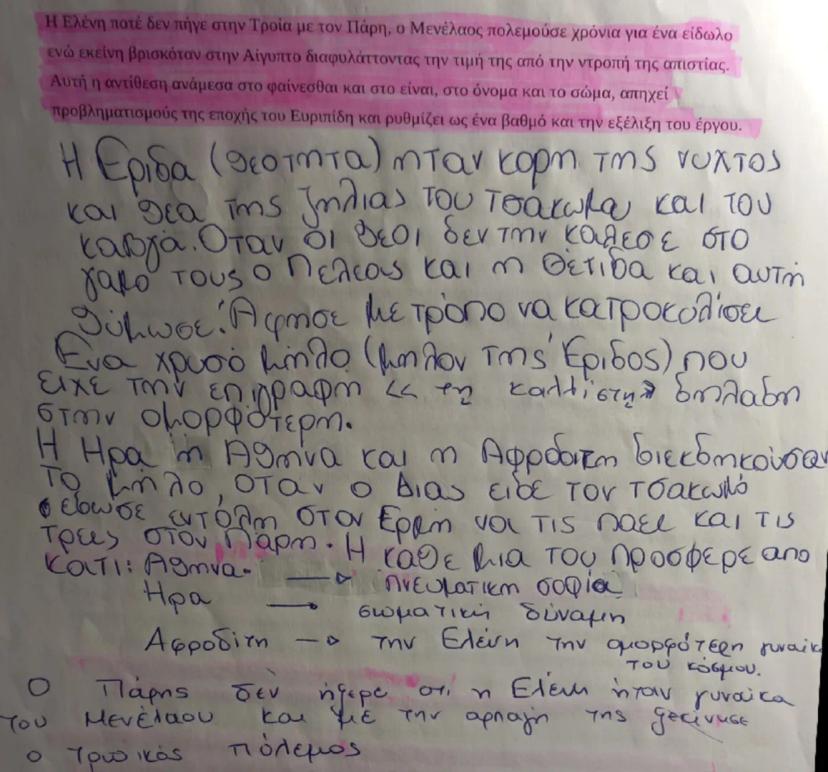 Η Ελένη ποτέ δεν πήγε στην Τροία με τον Πάρη, ο Μενέλαος πολεμούσε χρόνια για ένα είδωλο
ενώ εκείνη βρισκόταν στην Αίγυπτο διαφυλάττοντας την τιμή της από την ντροπή της απιστίας.
Αυτή η αντίθεση ανάμεσα στο φαίνεσθαι και στο είναι, στο όνομα και το σώμα, απηχεί
προβληματισμούς της εποχής του Ευριπίδη και ρυθμίζει ως ένα βαθμό και την εξέλιξη του έργου.
Η Εριδα (θεοτητα) ηταν κορη της νυχτος
και θεα της ζηλιας του τσακωμου και του
καυγά. Οταν οι θεοι δεν την καλεσε στο
γαμο τους ο Πελεας και η Θέτιδα και αυτή
θύμωσε. Αφησε με τρόπο να κατροκυλίσει
Ενα χρυσό μηλο (μηλον της Έριδος) που
ειχε την επιγραφη << τη καλλίστη >> δηλαδη
στην ομορφότερη.
Η Ηρα η Αθηνα και η Αφροδιτη διεκδηκούσαν
το μηλο, οταν ο Διας ειδε τον τσακωμό
εδωσε εντολη στον Ερμη να τις παει και τις
τρεις στον Πάρη. Η καθε μια του προσφερε απο
κατι: Αθηνα. → πνευματικη σοφία
Ηρα → σωματική δύναμη
Αφροδίτη → την Ελένη την ομορφότερη γυναίκ
του κόσμου.
Ο Πάρης δεν ήξερε οτι η Ελένη ήταν γυναίκα
του Μενέλαου και με την αρπαγή της ξεκίνησε
ο Τρωικός πόλεμος